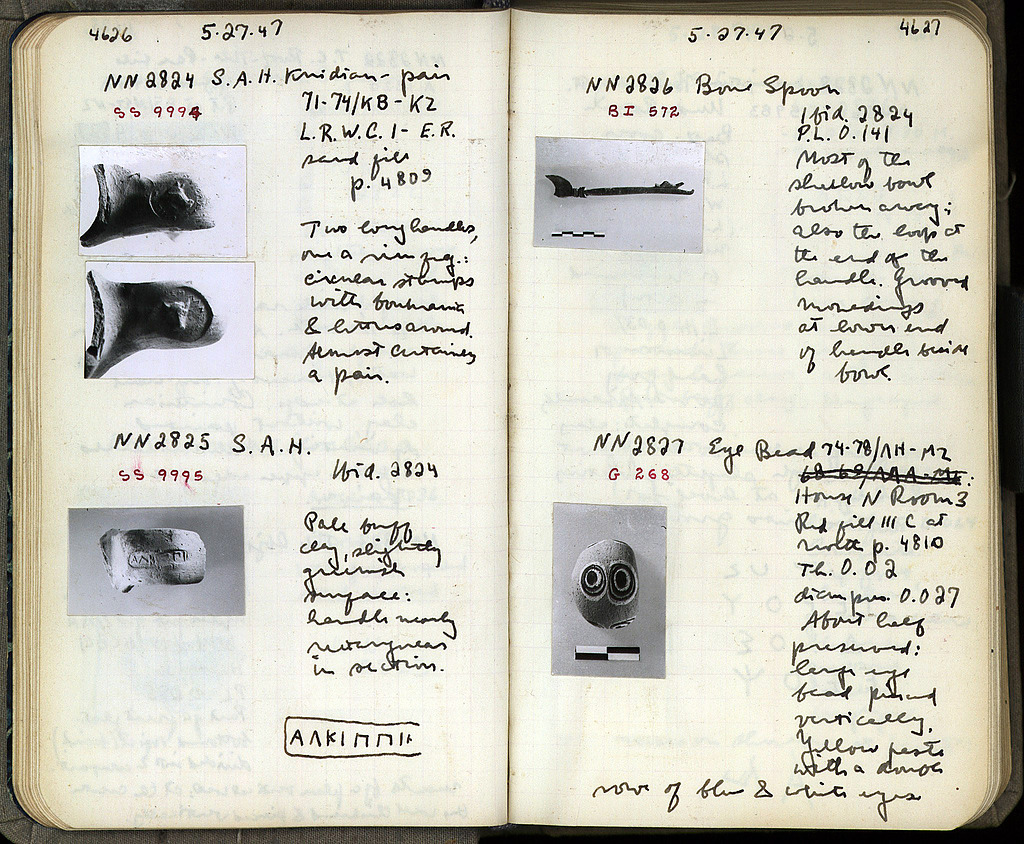 4626
5·27·47
NN2824 S.A.H. Knidian - pair
SS 9994
71-74/KB-KZ
L.R.W.C. 1 - E.R.
sand fill
p. 4809
Two long handles,
one a rim frg.:
circular stamps
with boukrania
& letters around.
Almost certainly
a pair.
NN2825 S.A.H.
SS 9995
Ibid. 2824
Pale buff
clay, slightly
greenish
surface:
handle nearly
rectangular
in section.
ΑΛΚΙΠΠΙ
ΑΛΚΙΠΠΙ
5·27·47
4627
NN2826 Bone Spoon
BI 572
Ibid. 2824
P.L. 0.141
Most of the
shallow bowl
broken away;
also the loop at
the end of the
handle. Grooved
mouldings
at lower end
of handle beside
bowl.
NN2827 Eye Bead 74-78/ΛH-MZ
G 268
House N Room 3
Red fill III C at
north p. 4810
Th. 0.02
diam pres. 0.027
About half
preserved:
large eye
bead pierced
vertically.
Yellow paste
with a double
rows of blue & white eyes